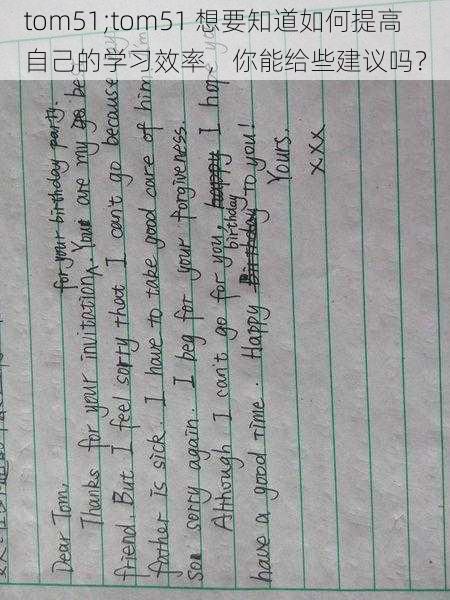 tom51;tom51 想要知道如何提高
自己的学习效率，你能给些建议吗？
Dear Tom,
for your birthday party.
Thanks for your invitation. You are my be
friend. But I feel sorry that I can't go because
father is sick. I have to take good care of him
So sorry again. I beg for your forgiveness.
Although I can't go for you, happy I
birthday
have a good time. Happy Birthday to you!
Yours,
xxx